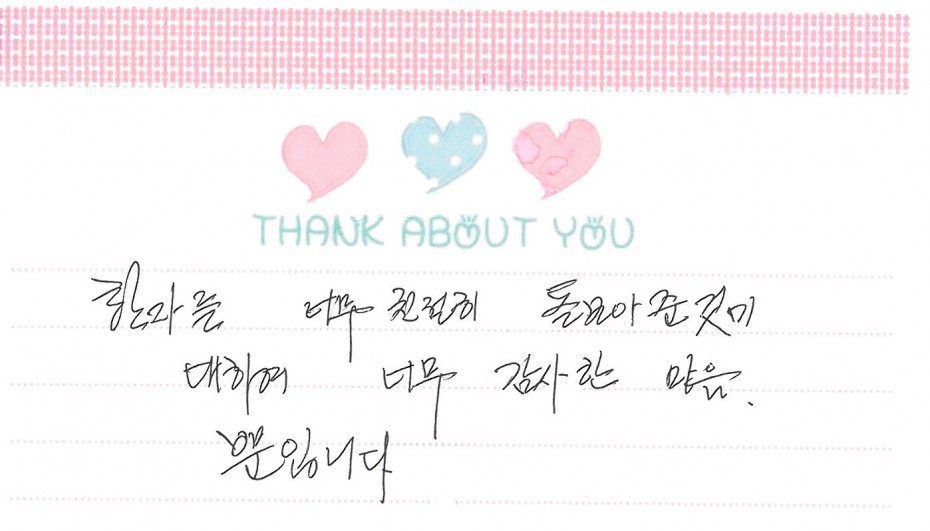 THANK ABOUT YOU
환자를 너무 친절히 돌보아 준 것에
대하여 너무 감사한 마음.
뿐입니다